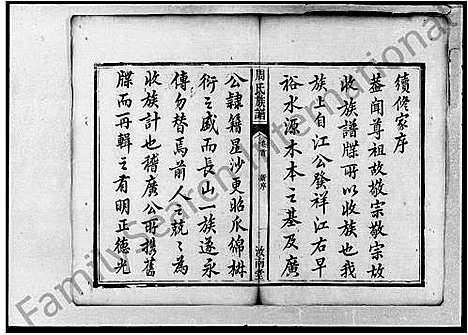 續修家序
蓋聞尊祖故敬宗敬宗故
收族譜牒所以收族也我
族上自江公發祥江右早
裕水源木本之基及廣
周氏族譜
卷首
新序
汝南堂
公隸籍星沙更昭瓜綿椒
衍之盛而長山一族遂永
傳勿替焉前人之兢兢為
收族計也稽廣公所攜舊
牒而再輯之有明正德光
FamilySearch International